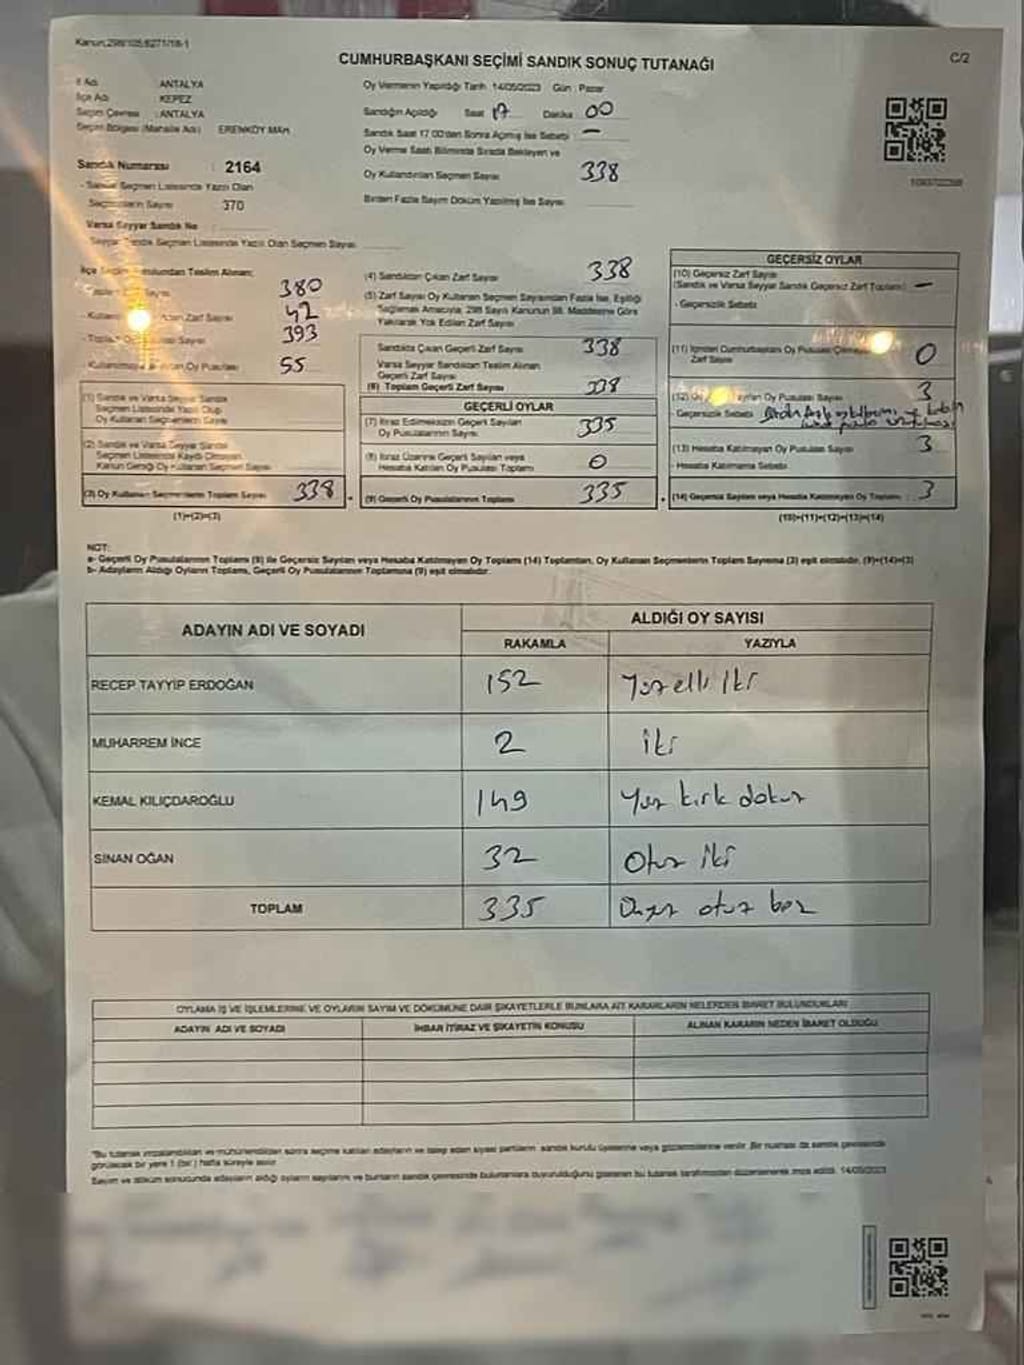 Kanun:298/105;6271/18-1
C/2
CUMHURBAŞKANI SEÇİMİ SANDIK SONUÇ TUTANAĞI
İl Adı : ANTALYA
İlçe Adı : KEPEZ
Seçim Çevresi : ANTALYA
Seçim Bölgesi (Mahalle Adı) : ERENKÖY MAH.
Sandık Numarası : 2164
- Sandık Seçmen Listesinde Yazılı Olan
Seçmenlerin Sayısı 370
Varsa Seyyar Sandık No :
Seyyar Sandık Seçmen Listesinde Yazılı Olan Seçmen Sayısı
Oy Vermenin Yapıldığı Tarih 14/05/2023 Gün : Pazar
Sandığın Açıldığı Saat 17 Dakika 00
Sandık Saat 17.00'den Sonra Açılmış İse Sebebi –
Oy Verme Saati Bitiminde Sırada Bekleyen ve
Oy Kullandırılan Seçmen Sayısı 338
Birden Fazla Sayım Döküm Yapılmış İse Sayısı
İlçe Seçim Kurulundan Teslim Alınan;
380
- Kullanılmayan Zarf Sayısı 42
- Toplam Oy Pusulası Sayısı 393
- Kullanılmayan Oy Pusulası 55
(1) Sandık ve Varsa Seyyar Sandık
Seçmen Listesinde Yazılı Olup
Oy Kullanan Seçmenlerin Sayısı
(2) Sandık ve Varsa Seyyar Sandık
Seçmen Listesinde Kaydı Olmayan
Kanun Gereği Oy Kullanan Seçmen Sayısı
(3) Oy Kullanan Seçmenlerin Toplam Sayısı 338
(1)+(2)=(3)
(4) Sandıktan Çıkan Zarf Sayısı 338
(5) Zarf Sayısı Oy Kullanan Seçmen Sayısından Fazla İse, Eşitliği
Sağlamak Amacıyla, 298 Sayılı Kanunun 98. Maddesine Göre
Yakılarak Yok Edilen Zarf Sayısı
Sandıkta Çıkan Geçerli Zarf Sayısı 338
Varsa Seyyar Sandıktan Teslim Alınan
Geçerli Zarf Sayısı
(6) Toplam Geçerli Zarf Sayısı 338
GEÇERLİ OYLAR
(7) İtiraz Edilmeksizin Geçerli Sayılan
Oy Pusulalarının Sayısı 335
(8) İtiraz Üzerine Geçerli Sayılan veya
Hesaba Katılan Oy Pusulası Toplamı 0
(9) Geçerli Oy Pusulalarının Toplamı 335
GEÇERSİZ OYLAR
(10) Geçersiz Zarf Sayısı
(Sandık ve Varsa Seyyar Sandık Geçersiz Zarf Toplamı) –
- Geçersizlik Sebebi
(11) İçinden Cumhurbaşkanı Oy Pusulası Çıkmayan
Zarf Sayısı 0
Sayılan Oy Pusulası Sayısı 3
- Geçersizlik Sebebi
(13) Hesaba Katılmayan Oy Pusulası Sayısı 3
- Hesaba Katılmama Sebebi
(14) Geçersiz Sayılan veya Hesaba Katılmayan Oy Toplamı : 3
(10)+(11)+(12)+(13)=(14)
NOT:
a- Geçerli Oy Pusulalarının Toplamı (9) ile Geçersiz Sayılan veya Hesaba Katılmayan Oy Toplamı (14) Toplamları, Oy Kullanan Seçmenlerin Toplam Sayısına (3) eşit olmalıdır. (9)+(14)=(3)
b- Adayların Aldığı Oyların Toplamı, Geçerli Oy Pusulalarının Toplamına (9) eşit olmalıdır.
ADAYIN ADI VE SOYADI
ALDIĞI OY SAYISI
RAKAMLA YAZIYLA
RECEP TAYYİP ERDOĞAN 152 Yüz elli iki
MUHARREM İNCE 2 iki
KEMAL KILIÇDAROĞLU 149 Yüz kırk dokuz
SİNAN OĞAN 32 Otuz iki
TOPLAM 335 Üçyüz otuz beş
OYLAMA İŞ VE İŞLEMLERİNE VE OYLARIN SAYIM VE DÖKÜMÜNE DAİR ŞİKAYETLERLE BUNLARA AİT KARARLARIN NELERDEN İBARET BULUNDUKLARI
ADAYIN ADI VE SOYADI İHBAR İTİRAZ VE ŞİKAYETİN KONUSU ALINAN KARARIN NEDEN İBARET OLDUĞU
"Bu tutanak imzalandıktan ve mühürlendikten sonra seçime katılan adayların ve talep eden siyasi partilerin sandık kurulu üyelerine veya gözlemcilerine verilir. Bir nüshası da sandık çevresinde
görülecek bir yere 1 (bir) hafta süreyle asılır.
Sayım ve döküm sonucunda adayların aldığı oyların sayılarını ve bunların sandık çevresinde bulunanlara duyurulduğunu gösteren bu tutanak tarafımızdan düzenlenerek imza edildi. 14/05/2023